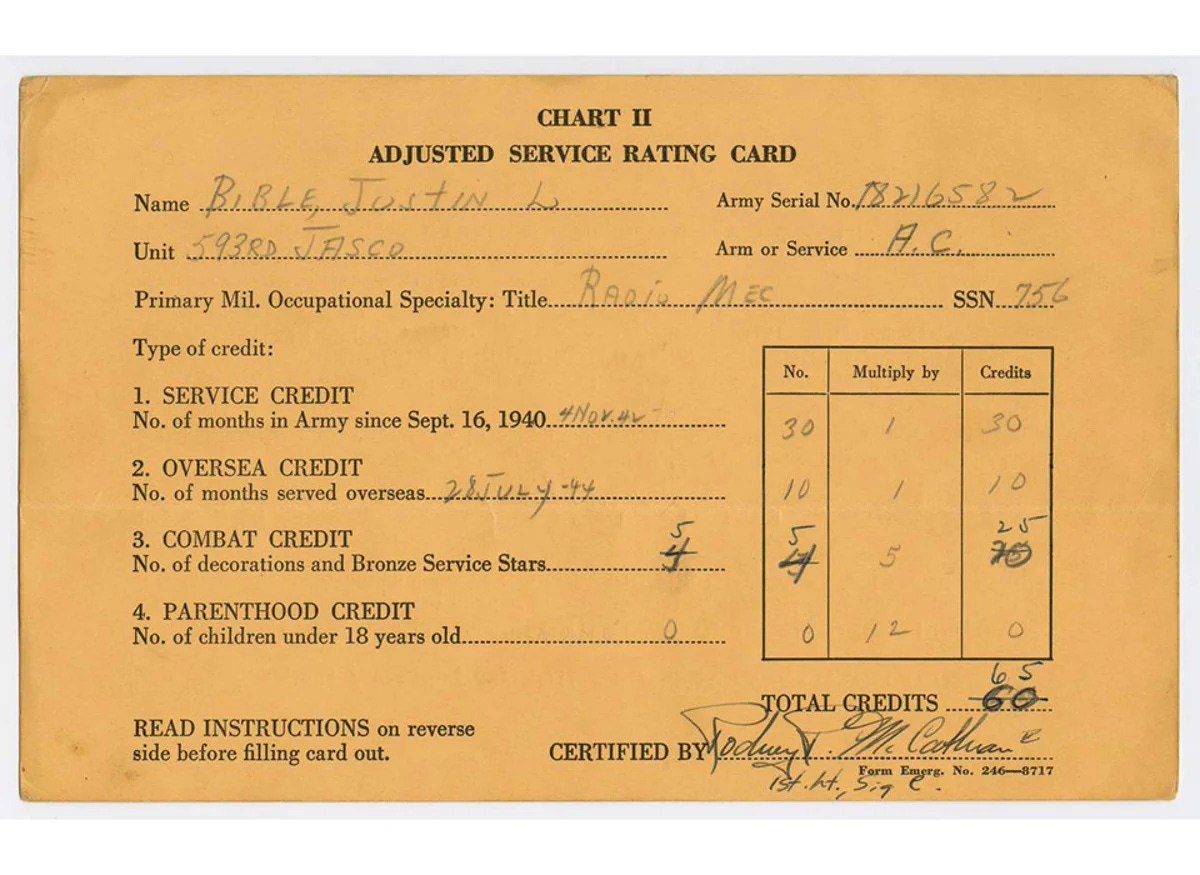 CHART II
ADJUSTED SERVICE RATING CARD
Name BIBLE, JUSTIN L Army Serial No. 18216582
Unit 593RD JASCO Arm or Service A.C.
Primary Mil. Occupational Specialty: Title RADIO MEC SSN 756
Type of credit:
No. Multiply by Credits
1. SERVICE CREDIT
No. of months in Army since Sept. 16, 1940 4 NOV. 42 30 1 30
2. OVERSEA CREDIT
No. of months served overseas 28 JULY-44 10 1 10
5 5 25
3. COMBAT CREDIT
No. of decorations and Bronze Service Stars 4 4 5
4. PARENTHOOD CREDIT
No. of children under 18 years old 0 0 12 0
65
TOTAL CREDITS 60
READ INSTRUCTIONS on reverse
side before filling card out. CERTIFIED BY Rodney
Form Emerg. No. 246—8717
1st. Lt., Sig C.